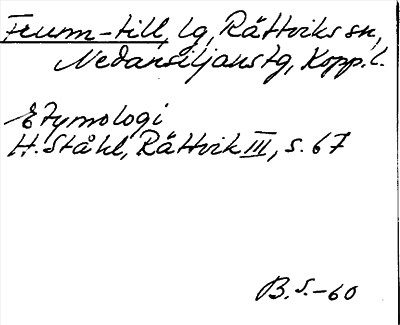 Feum-till, lg, Rättviks sn,
Nedansiljanstg, Kopp. l.
Etymologi
H. Ståhl, Rättvik III, s. 67
B. S.-60